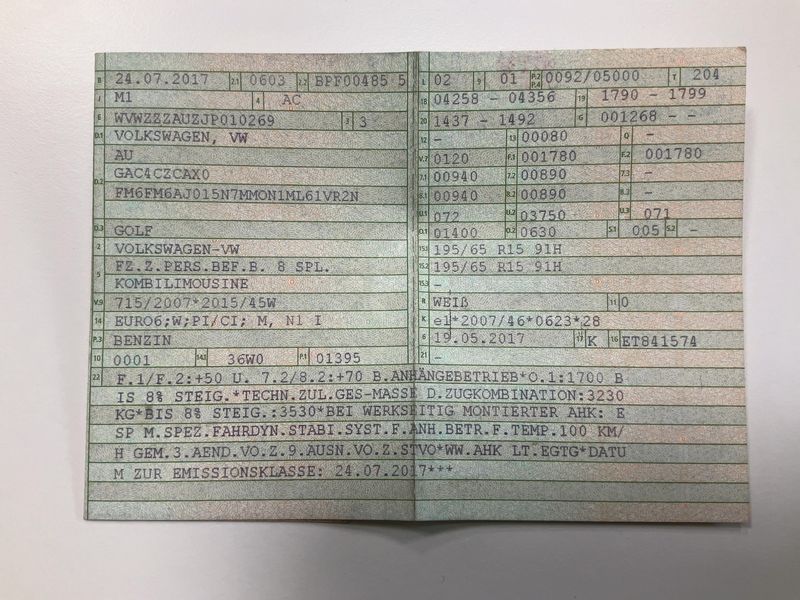 B 24.07.2017 2.1 0603 2.2 BPF00485 5
J M1 4 AC
E WVWZZZAUZJP010269 3 3
D.1 VOLKSWAGEN, VW
AU
D.2 GAC4CZCAX0
FM6FM6AJ015N7MMON1ML61VR2N
D.3 GOLF
2 VOLKSWAGEN-VW
5 FZ.Z.PERS.BEF.B. 8 SPL.
KOMBILIMOUSINE
V.9 715/2007*2015/45W
14 EURO6;W;PI/CI; M, N1 I
P.3 BENZIN
10 0001 14.1 36W0 P.1 01395
L 02 9 01 P.2 P.4 0092/05000 T 204
18 04258 - 04356 19 1790 - 1799
20 1437 - 1492 G 001268 - -
12 - 13 00080 Q -
V.7 0120 F.1 001780 F.2 001780
7.1 00940 7.2 00890 7.3 -
8.1 00940 8.2 00890 8.3 -
U.1 072 U.2 03750 U.3 071
O.1 01400 O.2 0630 S.1 005 S.2 -
15.1 195/65 R15 91H
15.2 195/65 R15 91H
15.3 -
R WEIß 11 0
K e1*2007/46*0623*28
6 19.05.2017 17 K 16 ET841574
21 -
22 F.1/F.2:+50 U. 7.2/8.2:+70 B.ANHÄNGEBETRIEB*O.1:1700 B
IS 8% STEIG.*TECHN.ZUL.GES-MASSE D.ZUGKOMBINATION:3230
KG*BIS 8% STEIG.:3530*BEI WERKSEITIG MONTIERTER AHK: E
SP M.SPEZ.FAHRDYN.STABI.SYST.F.ANH.BETR.F.TEMP.100 KM/
H GEM.3.AEND.VO.Z.9.AUSN.VO.Z.STVO*WW.AHK LT.EGTG*DATU
M ZUR EMISSIONSKLASSE: 24.07.2017***